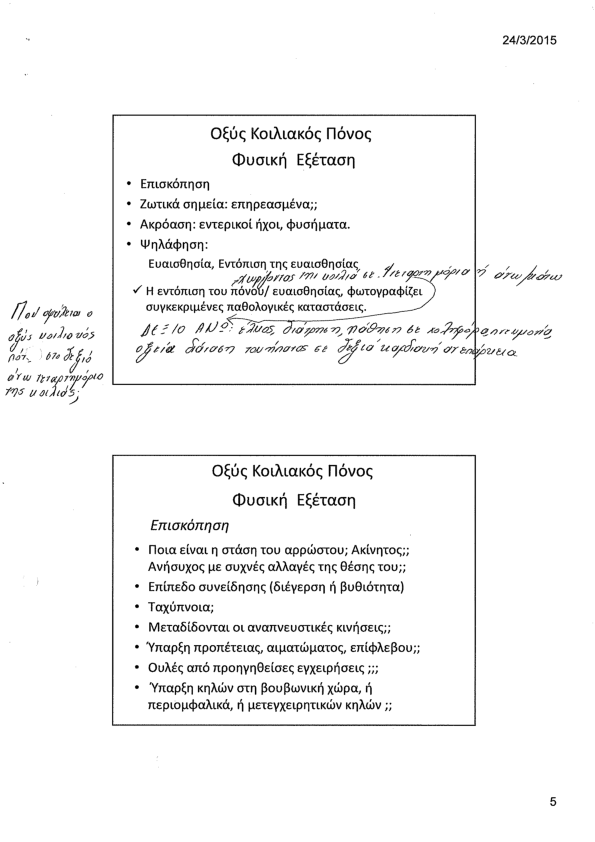 24/3/2015
Οξύς Κοιλιακός Πόνος
Φυσική Εξέταση
• Επισκόπηση
• Ζωτικά σημεία: επηρεασμένα;;
• Ακρόαση: εντερικοί ήχοι, φυσήματα.
• Ψηλάφηση:
Ευαισθησία, Εντόπιση της ευαισθησίας
χωρίζοντας την κοιλιά σε τεταρτημόρια ή άνω κάτω
✓ Η εντόπιση του πόνου/ ευαισθησίας, φωτογραφίζει
συγκεκριμένες παθολογικές καταστάσεις.
ΔΕΞΙΟ ΑΝΩ: έλκος, διάτρηση, πάθηση σε χοληφόρα, πνευμονία,
οξεία διάταση του ήπατος σε δεξιά καρδιακή ανεπάρκεια
Που οφείλεται ο
οξύς κοιλιακός
πόν. στο δεξιό
άνω τεταρτημόριο
της κοιλιάς;
Οξύς Κοιλιακός Πόνος
Φυσική Εξέταση
Επισκόπηση
• Ποια είναι η στάση του αρρώστου; Ακίνητος;;
Ανήσυχος με συχνές αλλαγές της θέσης του;;
• Επίπεδο συνείδησης (διέγερση ή βυθιότητα)
• Ταχύπνοια;
• Μεταδίδονται οι αναπνευστικές κινήσεις;;
• Ύπαρξη προπέτειας, αιματώματος, επίφλεβου;;
• Ουλές από προηγηθείσες εγχειρήσεις ;;;
• Ύπαρξη κηλών στη βουβωνική χώρα, ή
περιομφαλικά, ή μετεγχειρητικών κηλών ;;
5